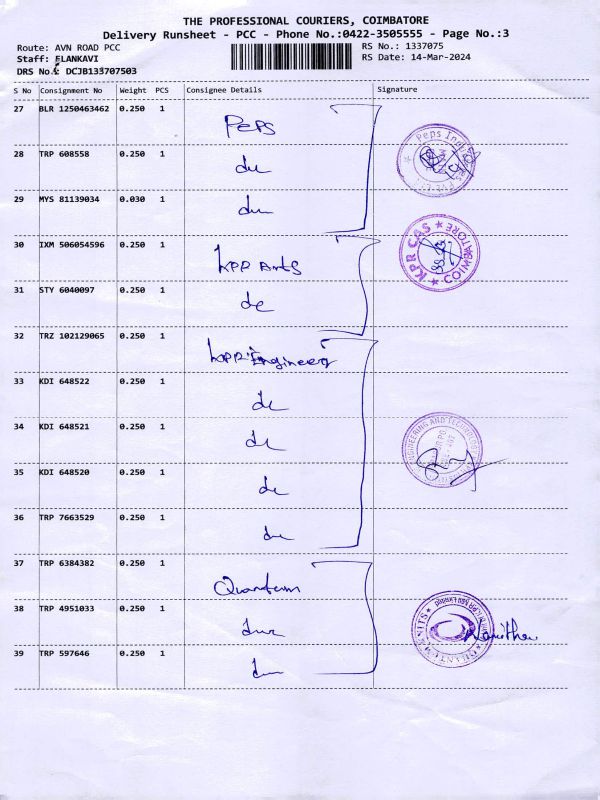 THE PROFESSIONAL COURIERS, COIMBATORE
Delivery Runsheet - PCC - Phone No.:0422-3505555 - Page No.:3
Route: AVN ROAD PCC
RS No.: 1337075
Staff: ELANKAVI
RS Date: 14-Mar-2024
DRS No.: DCJB133707503
S No Consignment No Weight PCS Consignee Details Signature
27 BLR 1250463462 0.250 1 PEPS
28 TRP 608558 0.250 1 du
29 MYS 81139034 0.030 1 du
30 IXM 506054596 0.250 1 KPR Arts
31 STY 6040097 0.250 1 de
32 TRZ 102129065 0.250 1 KPR Engineers
33 KDI 648522 0.250 1 de
34 KDI 648521 0.250 1 de
35 KDI 648520 0.250 1 de
36 TRP 7663529 0.250 1 du
37 TRP 6384382 0.250 1 Quantum
38 TRP 4951033 0.250 1
39 TRP 597646 0.250 1
Peps Industries Pvt. Ltd.
KPR CAS ★ COIMBATORE ★
ENGINEERING AND TECHNOLOGY
QUANTUM KNITS